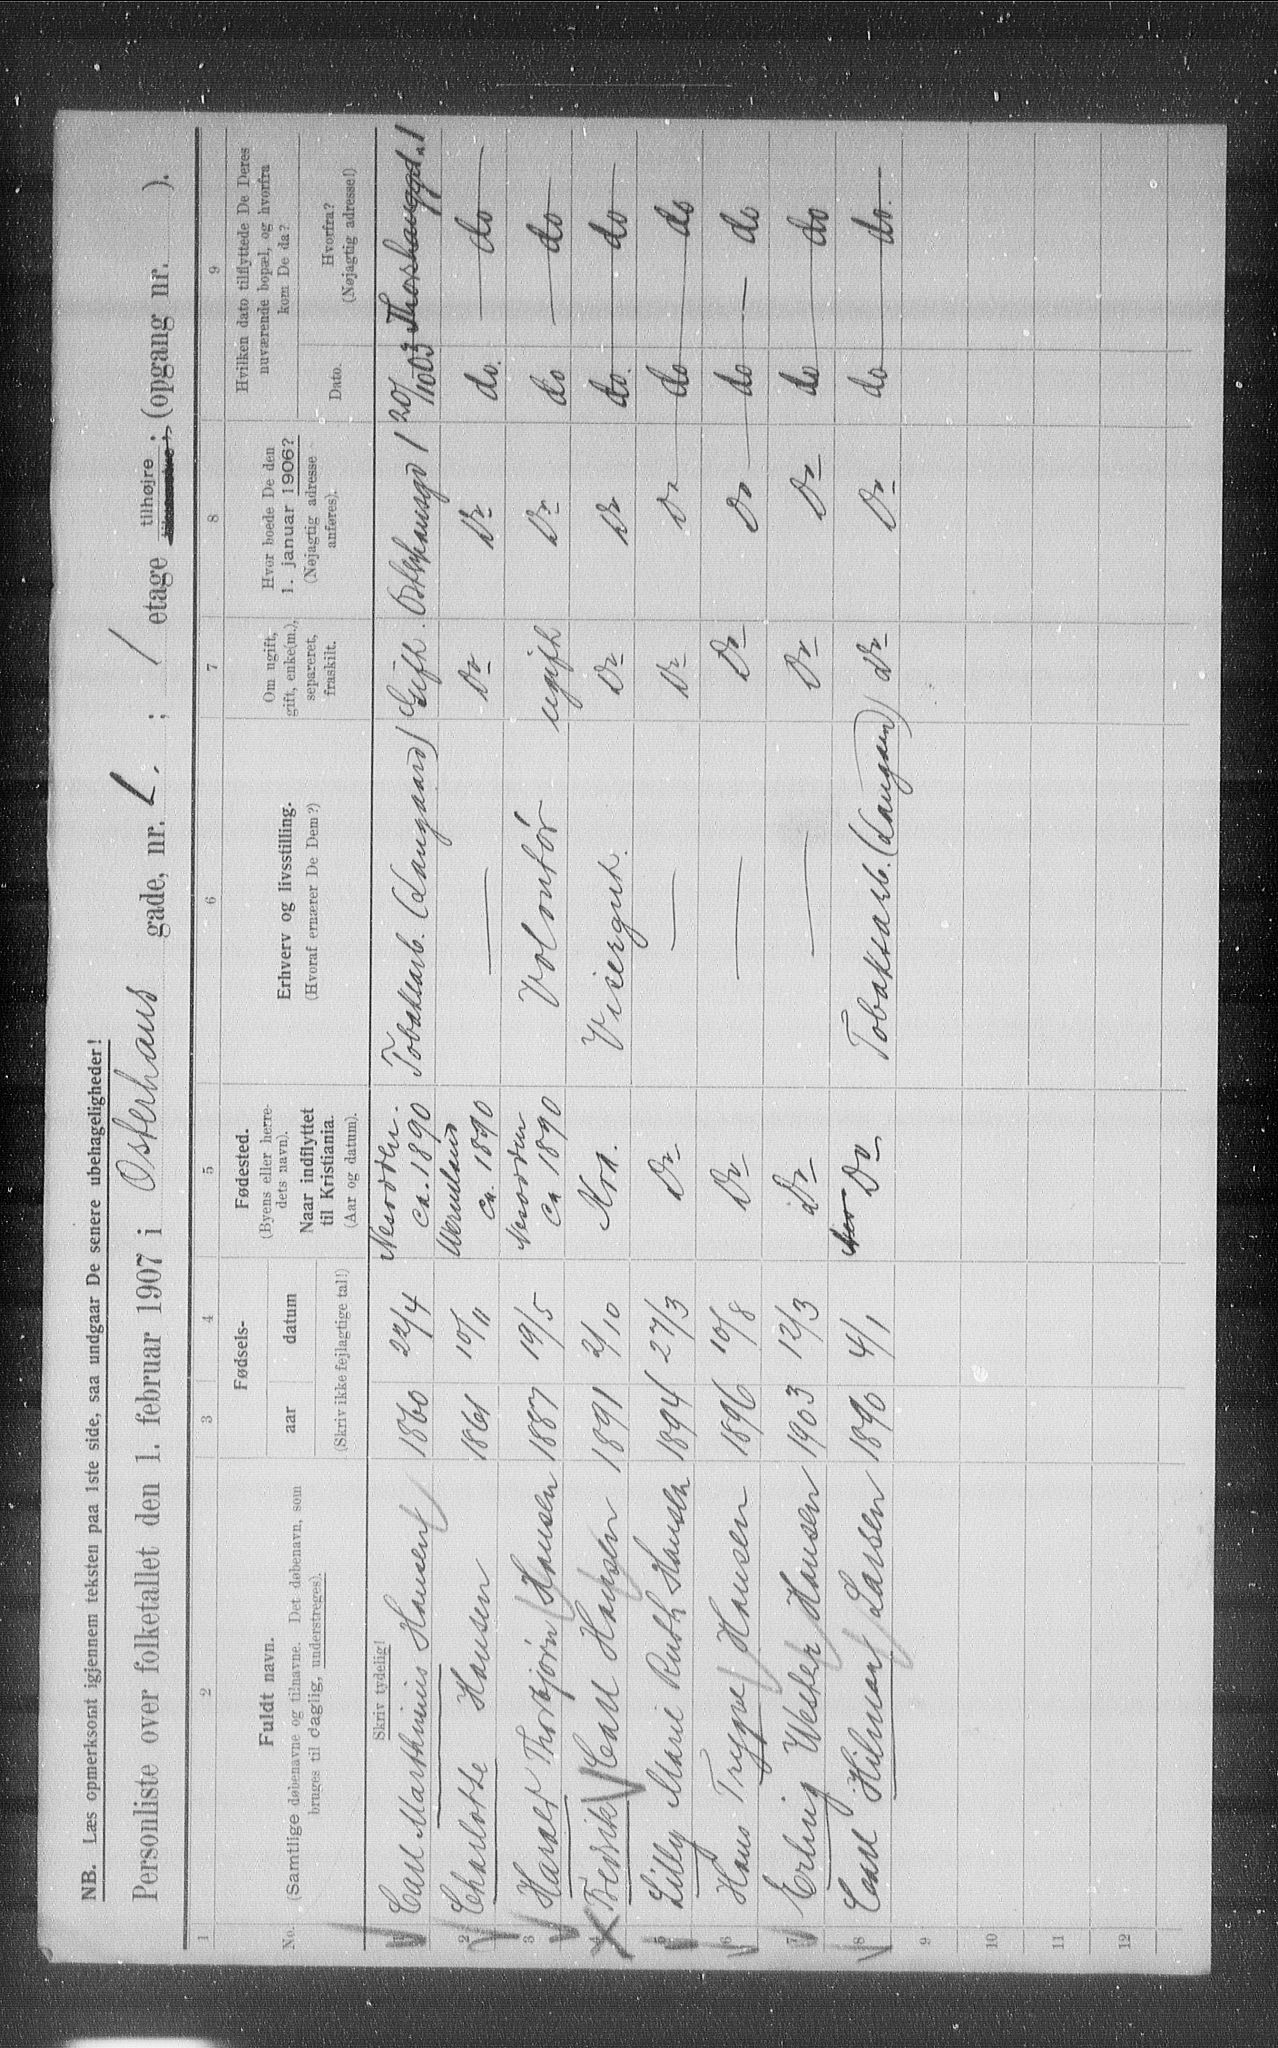 NB. Læs opmerksomt igjennem teksten paa 1ste side, saa undgaar De senere ubehageligheder!
Personliste over folketallet den 1. februar 1907 i Osterhaus gade, nr. 1. ; / etage tilhøjre ; (opgang nr. ).
1 2 3 4 5 6 7 8 9
No.
Fuldt navn.
(Samtlige døbenavne og tilnavne. Det døbenavn, som
bruges til daglig, understreges).
Skriv tydelig!
Fødsels-
aar datum
(Skriv ikke fejlagtige tal!)
Fødested.
(Byens eller herre-
dets navn).
Naar indflyttet
til Kristiania.
(Aar og datum).
Erhverv og livsstilling.
(Hvoraf ernærer De Dem?)
Om ugift,
gift, enke(m.),
separeret,
fraskilt.
Hvor boede De den
1. januar 1906?
(Nøjagtig adresse
anføres).
Hvilken dato tilflyttede De Deres
nuværende bopæl, og hvorfra
kom De da?
Dato.
Hvorfra?
(Nøjagtig adresse!)
1 Carl Marthinius Hansen 1860 22/4 Nesodden. ca. 1890 Tobakkarb. (Langaard) Gift. Osterhausgd 1 20/10 03
2 Charlotte Hansen 1861 10/11 Wermland ca. 1890 — Do do. do
3 Harald Thorbjørn Hansen 1887 19/5 Nesodden ca 1890 Volontør ugift Do do do
4 Fredrik Carl Hansen 1891 2/10 Kra. Visergut. Do Do do. do
5 Lilly Marie Ruth Hansen 1894 27/3 Do — Do Do do do
6 Hans Trygve Hansen 1896 10/8 Do — Do Do do do
7 Erling Hansen 1903 12/3 Do — Do Do do do
8 Carl Hilmar Larsen 1890 4/1 Do Tobaksarb. (Langaard) Do Do do do.
9
10
11
12